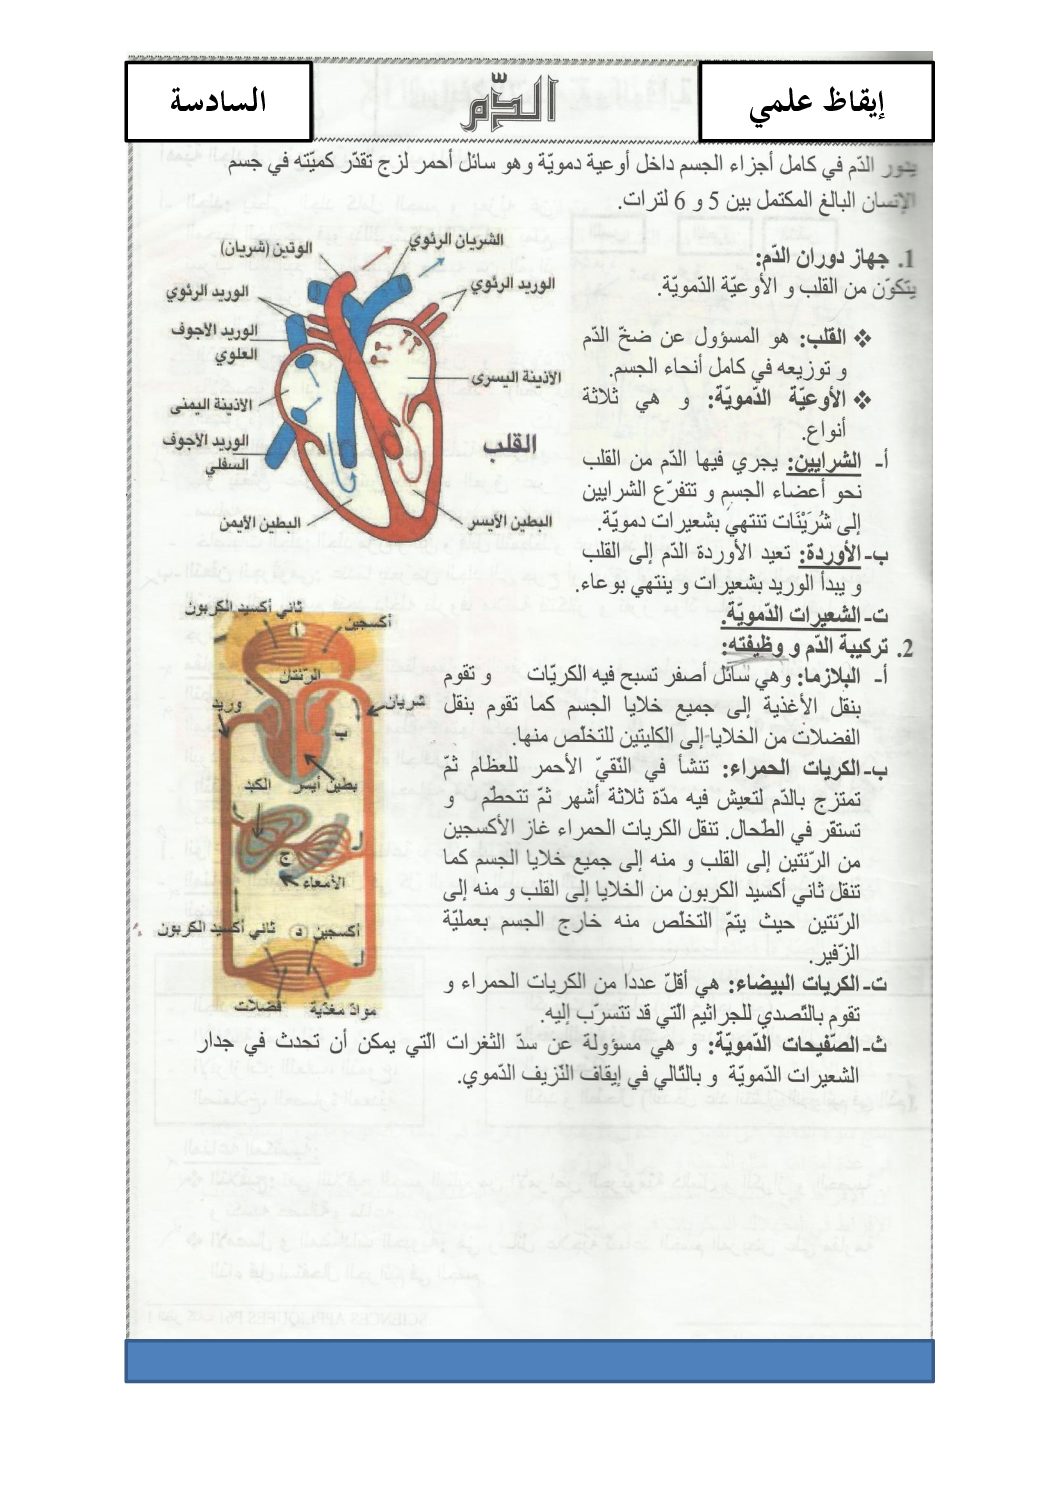 إيقاظ علمي
الدّم
السادسة
يدور الدّم في كامل أجزاء الجسم داخل أوعية دمويّة وهو سائل أحمر لزج تقدّر كميّته في جسم
الإنسان البالغ المكتمل بين 5 و 6 لترات.
1. جهاز دوران الدّم:
يتكوّن من القلب و الأوعيّة الدّمويّة.
❖ القلب: هو المسؤول عن ضخّ الدّم
و توزيعه في كامل أنحاء الجسم.
❖ الأوعيّة الدّمويّة: و هي ثلاثة
أنواع.
أ- الشرايين: يجري فيها الدّم من القلب
نحو أعضاء الجسم و تتفرّع الشرايين
إلى شُرَيْنَات تنتهي بشعيرات دمويّة.
ب- الأوردة: تعيد الأوردة الدّم إلى القلب
و يبدأ الوريد بشعيرات و ينتهي بوعاء.
ت- الشعيرات الدّمويّة.
الشريان الرئوي
الوتين (شريان)
الوريد الرئوي
الوريد الرئوي
الوريد الأجوف
العلوي
الأذينة اليسرى
الأذينة اليمنى
القلب
الوريد الأجوف
السفلي
البطين الأيسر
البطين الأيمن
2. تركيبة الدّم و وظيفته:
أ- البلازما: وهي سائل أصفر تسبح فيه الكريّات و تقوم
بنقل الأغذية إلى جميع خلايا الجسم كما تقوم بنقل
الفضلات من الخلايا إلى الكليتين للتخلّص منها.
ب- الكريات الحمراء: تنشأ في النّقيّ الأحمر للعظام ثمّ
تمتزج بالدّم لتعيش فيه مدّة ثلاثة أشهر ثمّ تتحطّم و
تستقر في الطّحال. تنقل الكريات الحمراء غاز الأكسجين
من الرّئتين إلى القلب و منه إلى جميع خلايا الجسم كما
تنقل ثاني أكسيد الكربون من الخلايا إلى القلب و منه إلى
الرّئتين حيث يتمّ التخلّص منه خارج الجسم بعمليّة
الزّفير.
ت- الكريات البيضاء: هي أقلّ عددا من الكريات الحمراء و
تقوم بالتّصدي للجراثيم الّتي قد تتسرّب إليه.
ث- الصّفيحات الدّمويّة: و هي مسؤولة عن سدّ الثغرات الّتي يمكن أن تحدث في جدار
الشعيرات الدّمويّة و بالتّالي في إيقاف النّزيف الدّموي.
ثاني أكسيد الكربون
أكسجين
أ
الرئتان
شريان
وريد
ب
بطين أيسر
الكبد
ج
الأمعاء
أكسجين
د
ثاني أكسيد الكربون
فضلات
موادّ مغذّية